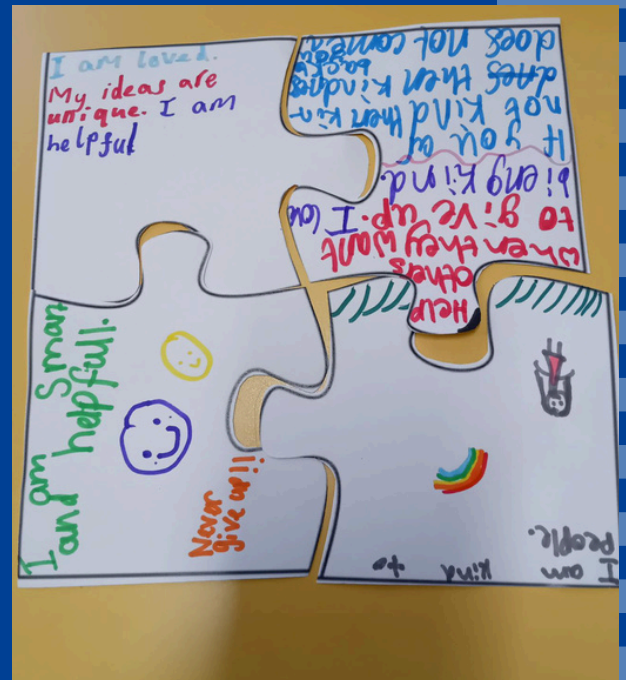 I am loved.
My ideas are
unique. I am
helpful
Help
others
when they want
to give up. I love
bieng kind.
If you
not kind then kin
dnes then kindnes
does not come
back
I am Smart
and helpfull.
Never
give up!!
I am kind to
people.